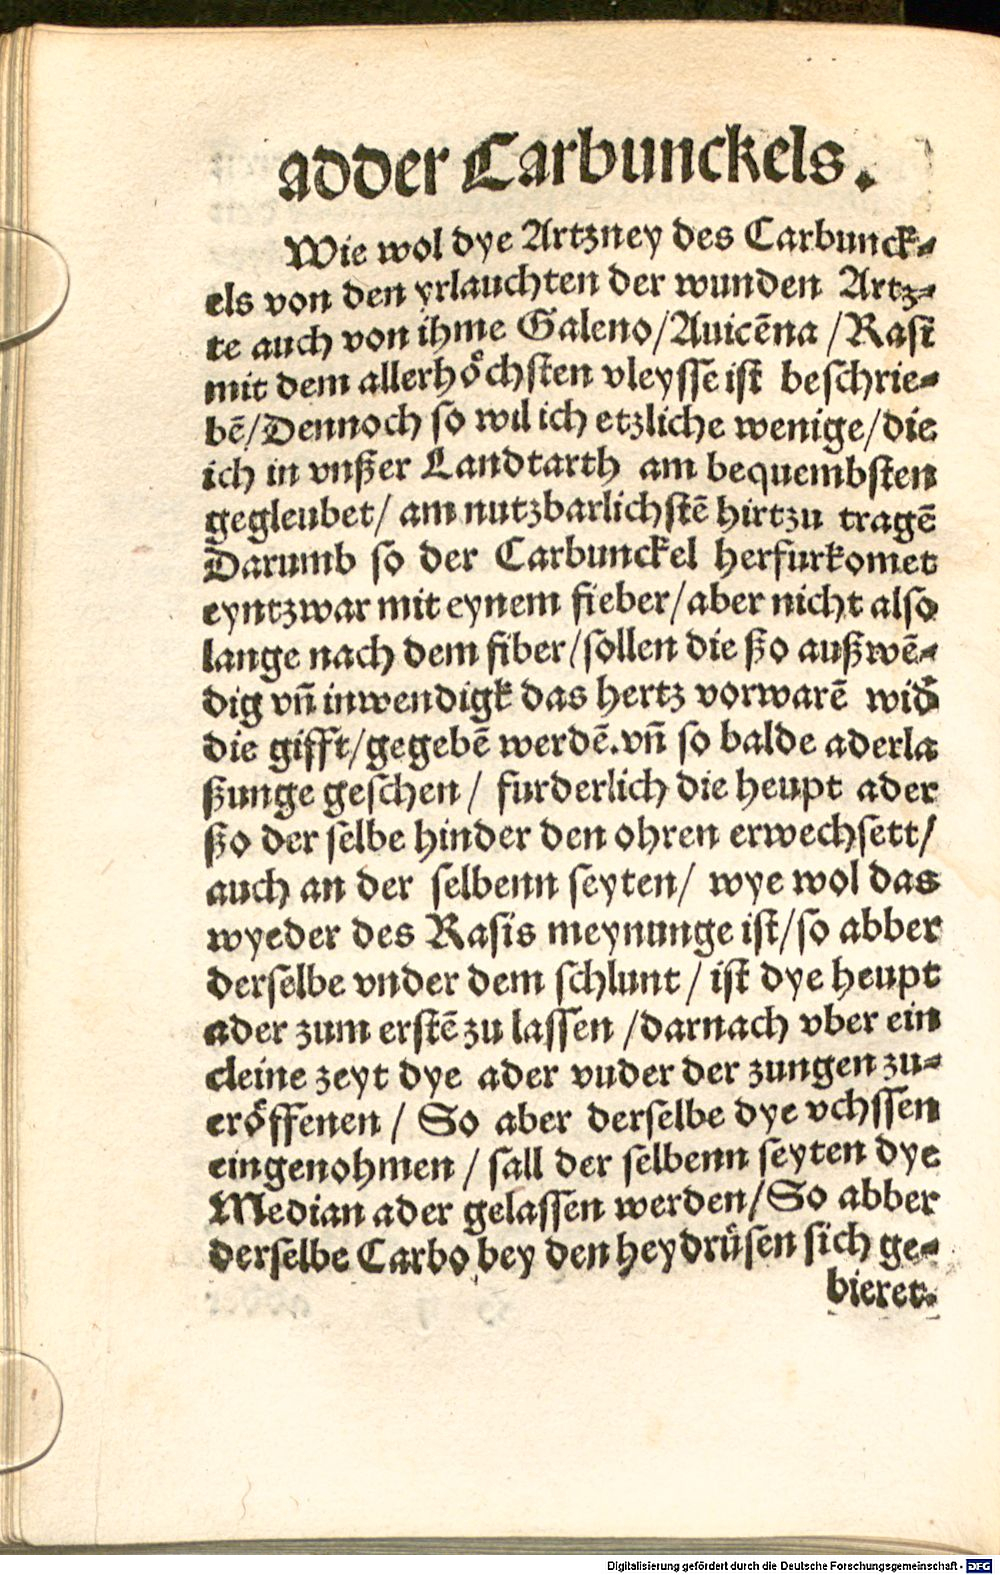 adder Carbunckels.
Wie wol dye Artzney des Carbunck⸗
els von den yrlauchten der wunden Artz⸗
te auch von ihme Galeno/Auicēna /Rasi
mit dem allerhöchsten vleysse ist beschrie⸗
bē/Dennoch so wil ich etzliche wenige/die
ich in vnßer Landtarth am bequembsten
gegleubet/ am nutzbarlichstē hirtzu tragē
Darumb so der Carbunckel herfurkomet
eyntzwar mit eynem fieber/aber nicht also
lange nach dem fiber/sollen die ßo außwē⸗
dig vn̄ inwendigk das hertz vorwarē wid̄
die gifft/gegebē werdē.vn̄ so balde aderla
ßunge geschen / furderlich die heupt ader
ßo der selbe hinder den ohren erwechsett/
auch an der selbenn seyten/ wye wol das
wyeder des Rasis meynunge ist/so abber
derselbe vnder dem schlunt / ist dye heupt
ader zum erstē zu lassen /darnach vber ein
cleine zeyt dye ader vuder der zungen zu⸗
eröffenen / So aber derselbe dye vchssen
eingenohmen / sall der selbenn seyten dye
Median ader gelassen werden/So abber
derselbe Carbo bey den heydrüsen sich ge⸗
bieret.
Digitalisierung gefördert durch die Deutsche Forschungsgemeinschaft - DFG